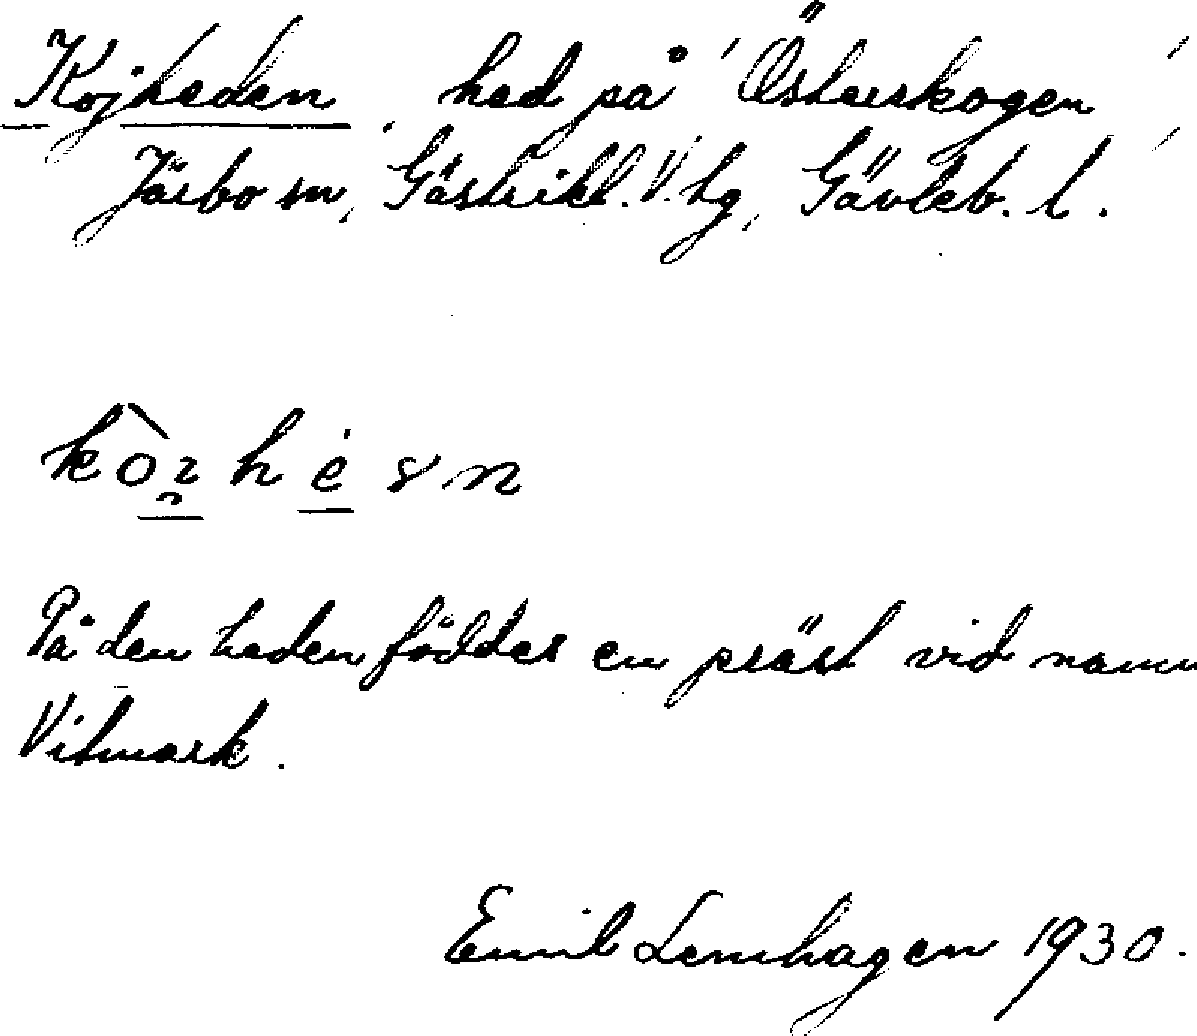 Kojheden, hed på 'Österskogen',
Järbo sn, Gästrikl. V. hg, Gävleb. l.
På den heden föddes en präst vid namn
Vitmark.
Emil Lernhagen 1930.